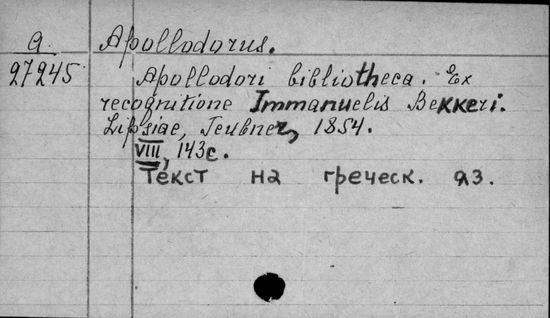 a Apollodorus.
27245 Apollodori bibliotheca. Ex
recognitione Immanuelis Bekkeri.
Lipsiae, Teubner, 1854.
VIII, 143с.
Текст на греческ. яз.